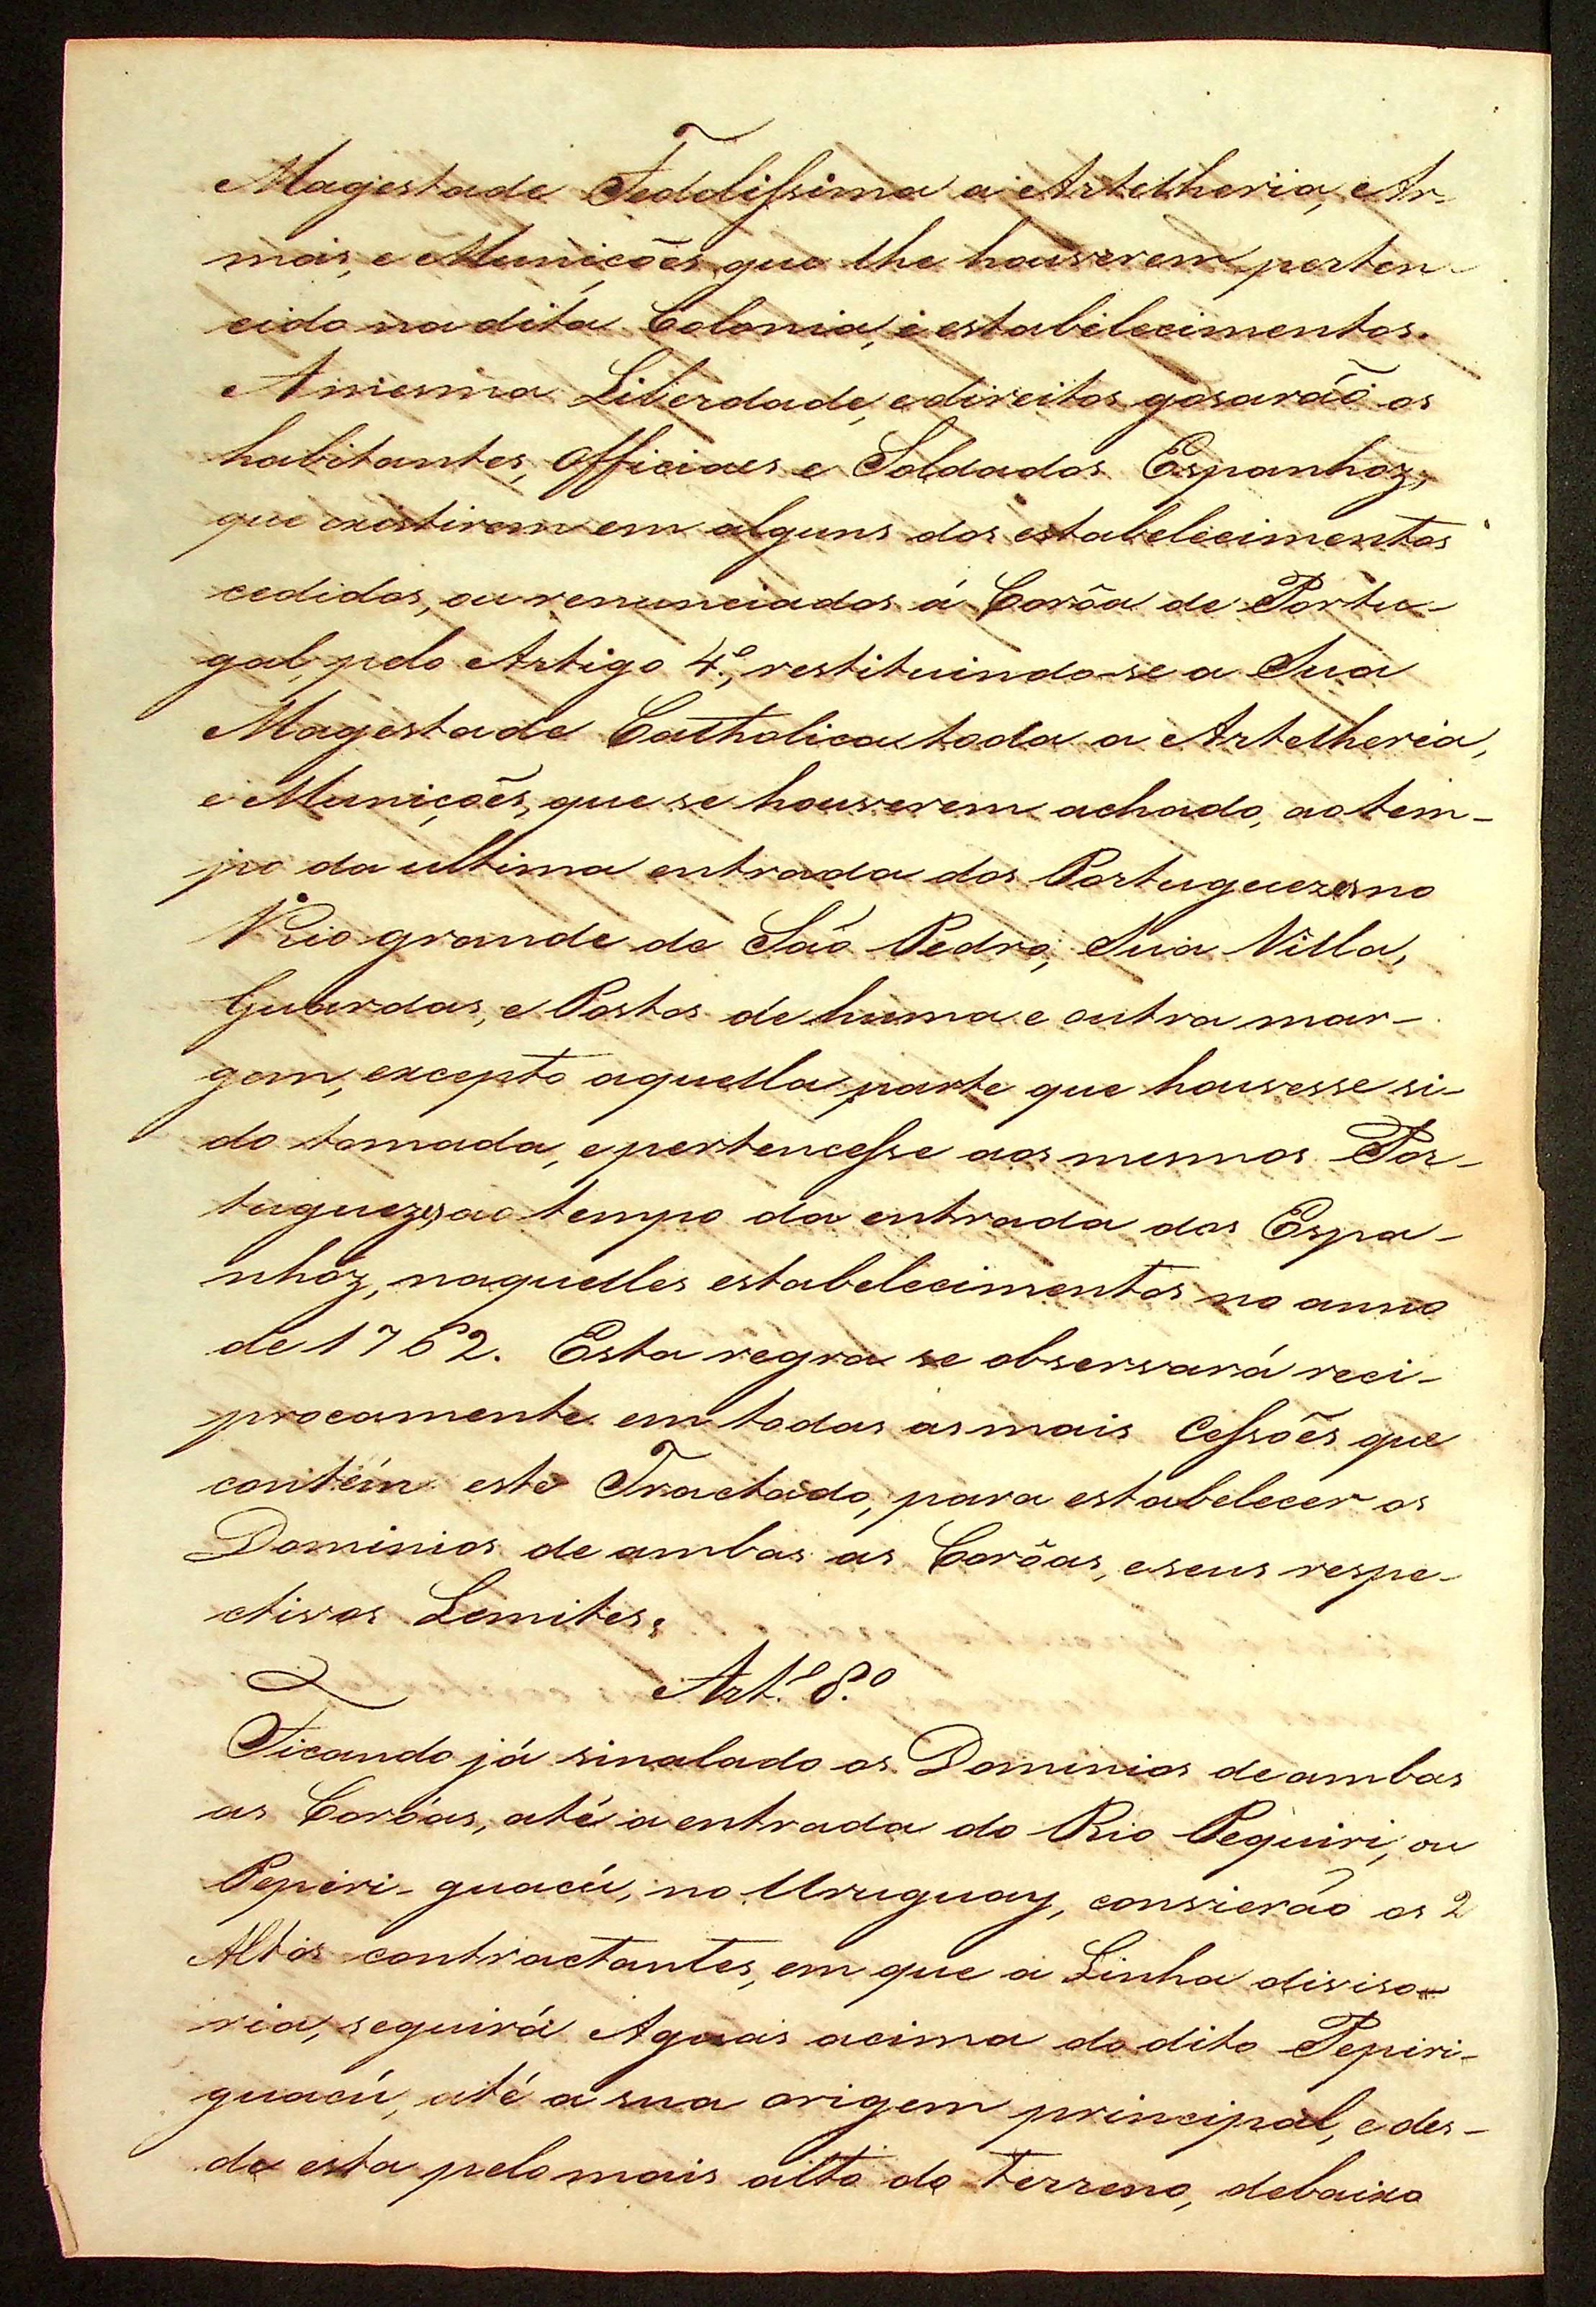 Magestade Fedelissima a Artelheria, Ar-
mas, e Munições, que lhe houverem perten-
cido na dita Colonia, e estabelecimentos.
A mesma Liberdade, e direitos gosarão os
habitantes, Officiaes e Soldados Espanhoz,
que existirem em alguns dos estabelecimentos
cedidos, ou renunciados á Corôa de Portu-
gal, pelo Artigo 4º, restituindo-se a Sua
Magestade Catholica toda a Artelheria,
e Munições, que se houverem achado, ao tem-
po da ultima entrada dos Portuguezes no
Rio grande de São Pedro, Sua Villa,
Guardas, e Postos de huma e outra mar-
gem, excepto aquella parte que houvesse si-
do tomada, e pertencesse aos mesmos Por-
tuguezes, ao tempo da entrada dos Espa-
nhoz, naquelles estabelecimentos no anno
de 1762. Esta régra se observará reci-
procamente em todas as mais Cessões que
contém este Tractado, para estabelecer os
Dominios de ambas as Corôas, e seus respe-
ctivos Lemites.
Art.º 8.º
Ficando já sinalado os Dominios de ambas
as Corôas, até a entrada do Rio Pequiri, ou
Pepiri-guacú, no Uruguay, convierão os 2
Altos contractantes, em que a Linha diviso-
ria, seguirá Aguas acima do dito Pepiri-
guacú, até a sua origem principal, e des-
de esta pelo mais alto do terreno, debaixo